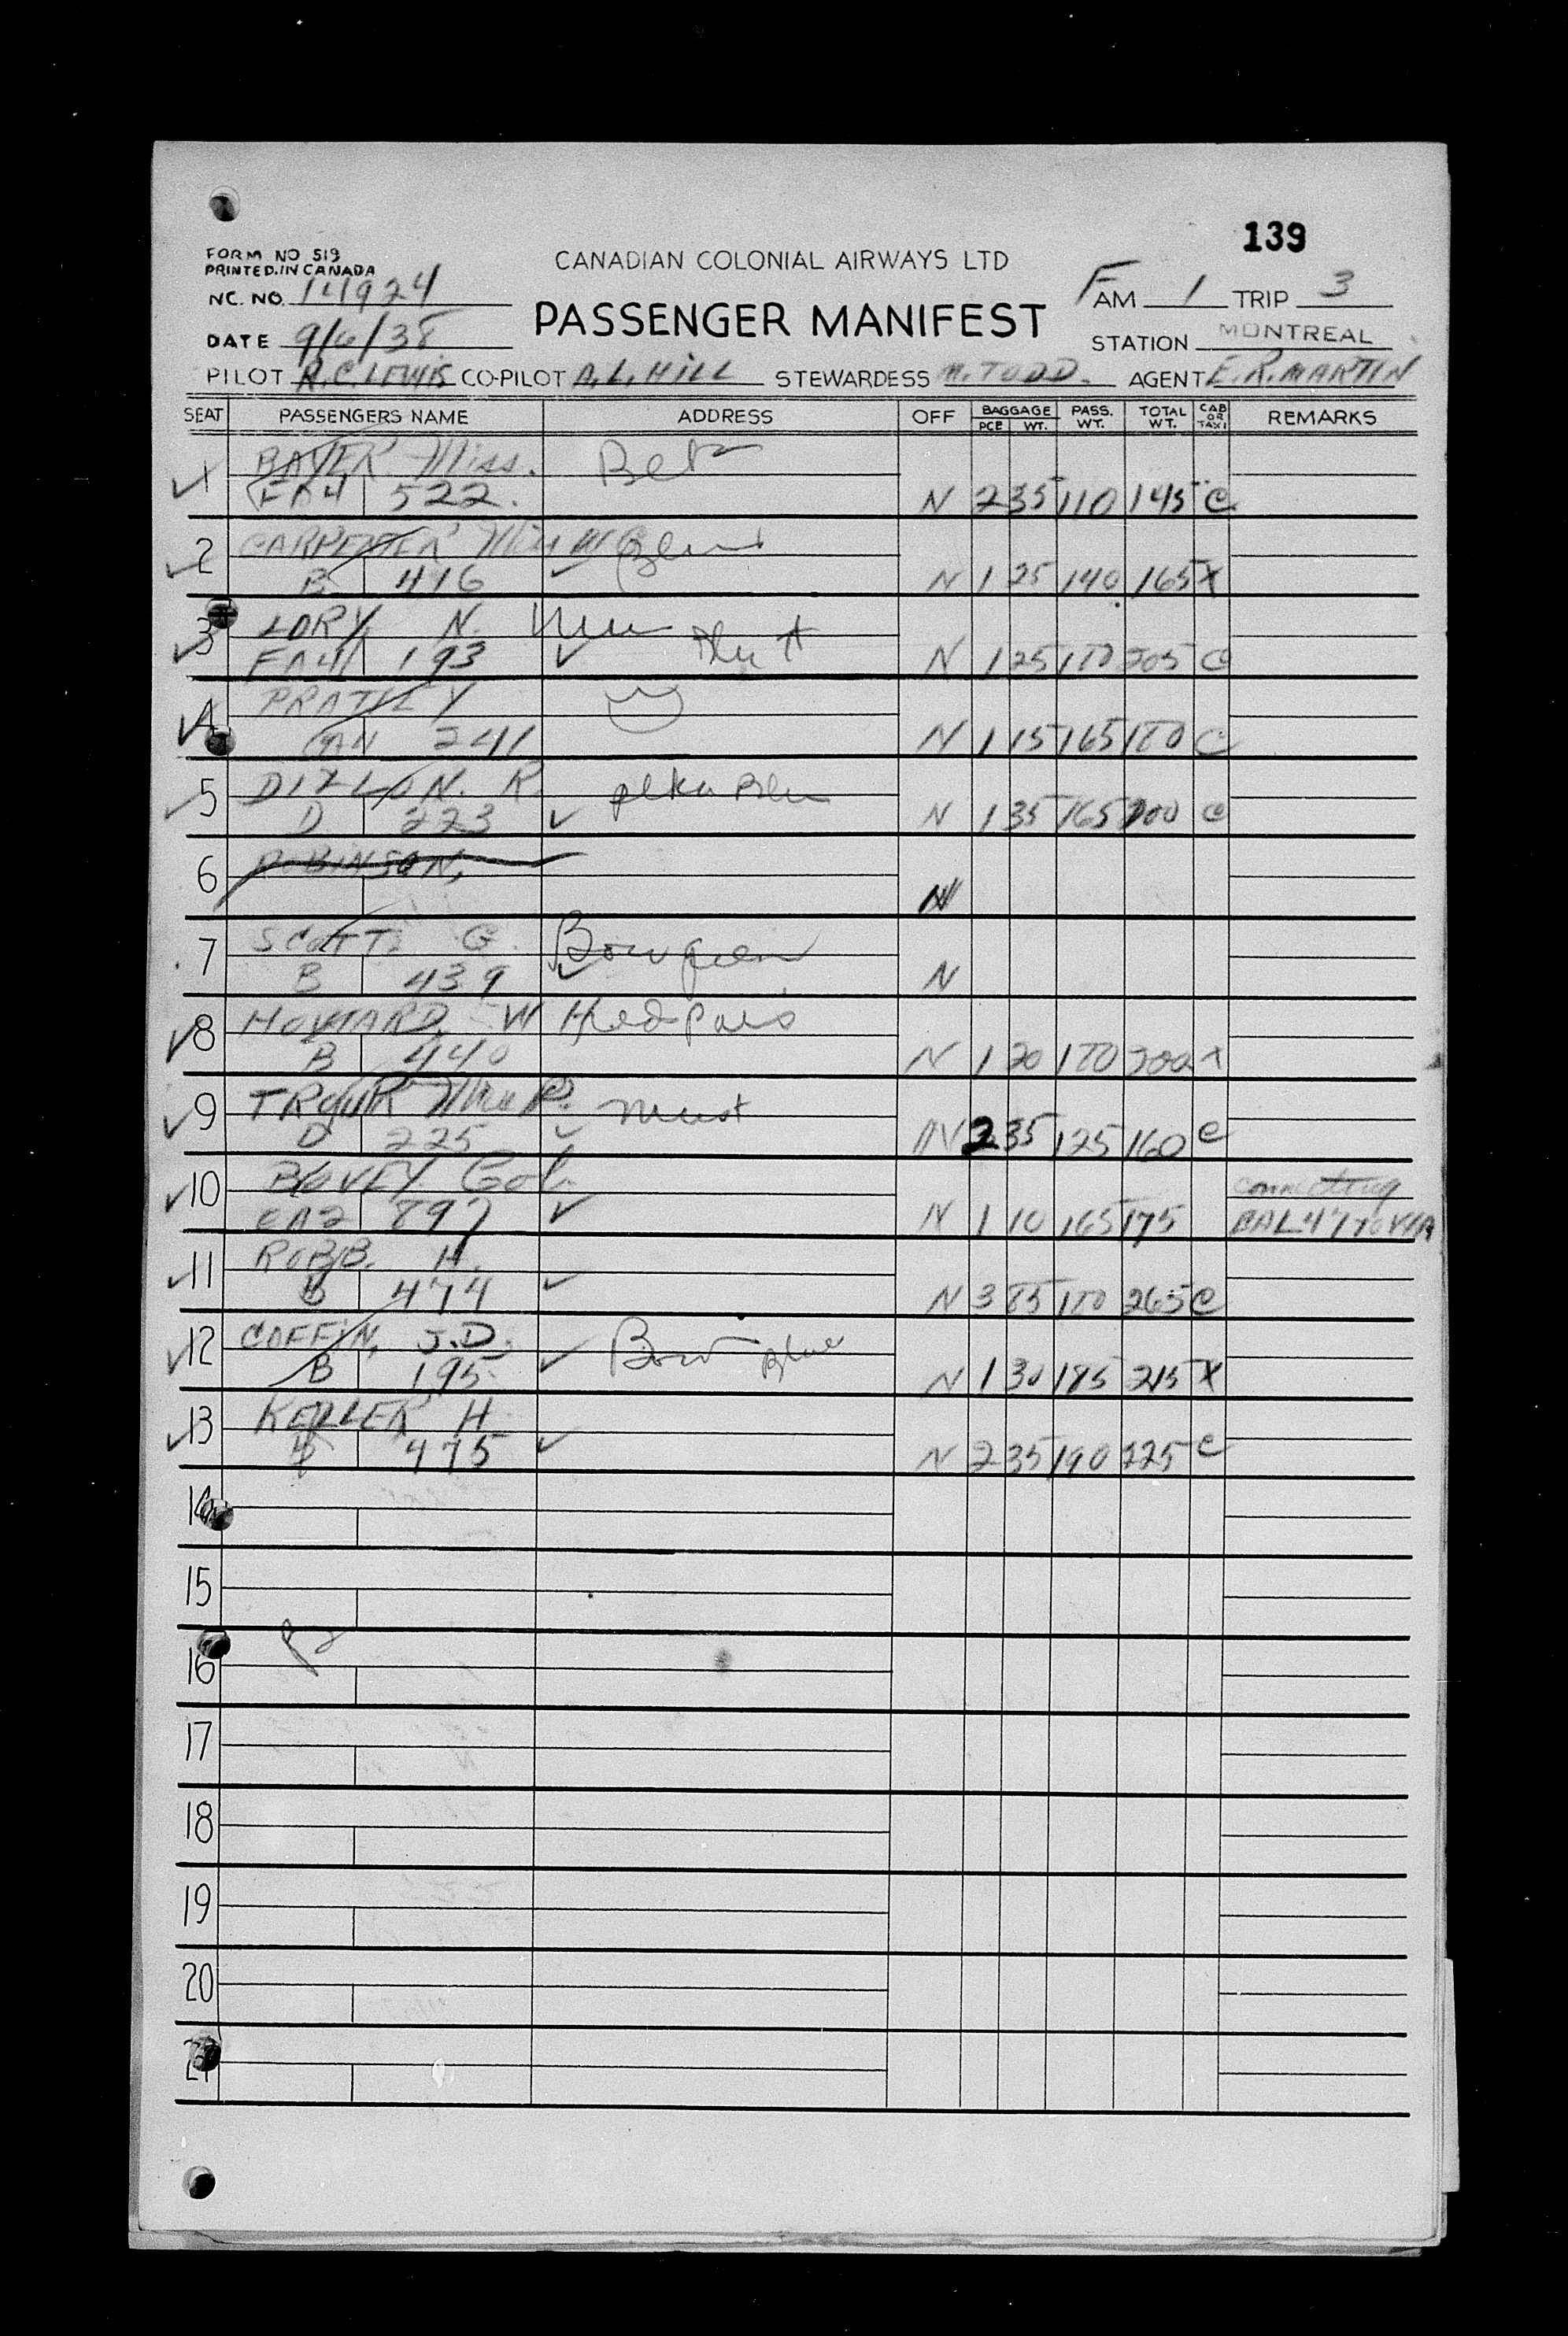 139
FORM NO 519
PRINTED IN CANADA
CANADIAN COLONIAL AIRWAYS LTD
NC. NO. 14924
FAM 1 TRIP 3
PASSENGER MANIFEST
DATE 9/6/38
STATION MONTREAL
PILOT R.C. LEWIS CO-PILOT A.L. HILL STEWARDESS M. TODD. AGENT E.R. MARTIN
SEAT PASSENGERS NAME ADDRESS OFF BAGGAGE PCE WT. PASS. WT. TOTAL WT. CAB OR TAXI REMARKS
1 BAYER Miss.
FA4 522. N 2 35 110 145 C
2 CARPENTER
B 416 N 1 25 140 165 X
3 LORY N.
FA4 193 N 1 25 180 205 C
4 PRATLEY
241 N 1 15 165 180 C
5 DILLON. R.
D 223 N 1 35 165 200 C
6 ROBINSON,
N
7 SCOTT. G.
B 439 N
8 HOWARD. W
B 440 N 1 20 180 200 X
9
D 225 N 2 35 125 160 C
10 BOVEY Col. connecting
EA2 897 N 1 10 165 175
11 ROBB. H.
474 N 3 85 180 265 C
12 COFFIN, J.D. Blue
B 195 N 1 30 185 215 X
13 KELLER H
475 N 2 35 190 225 C
14
15
16
17
18
19
20
21